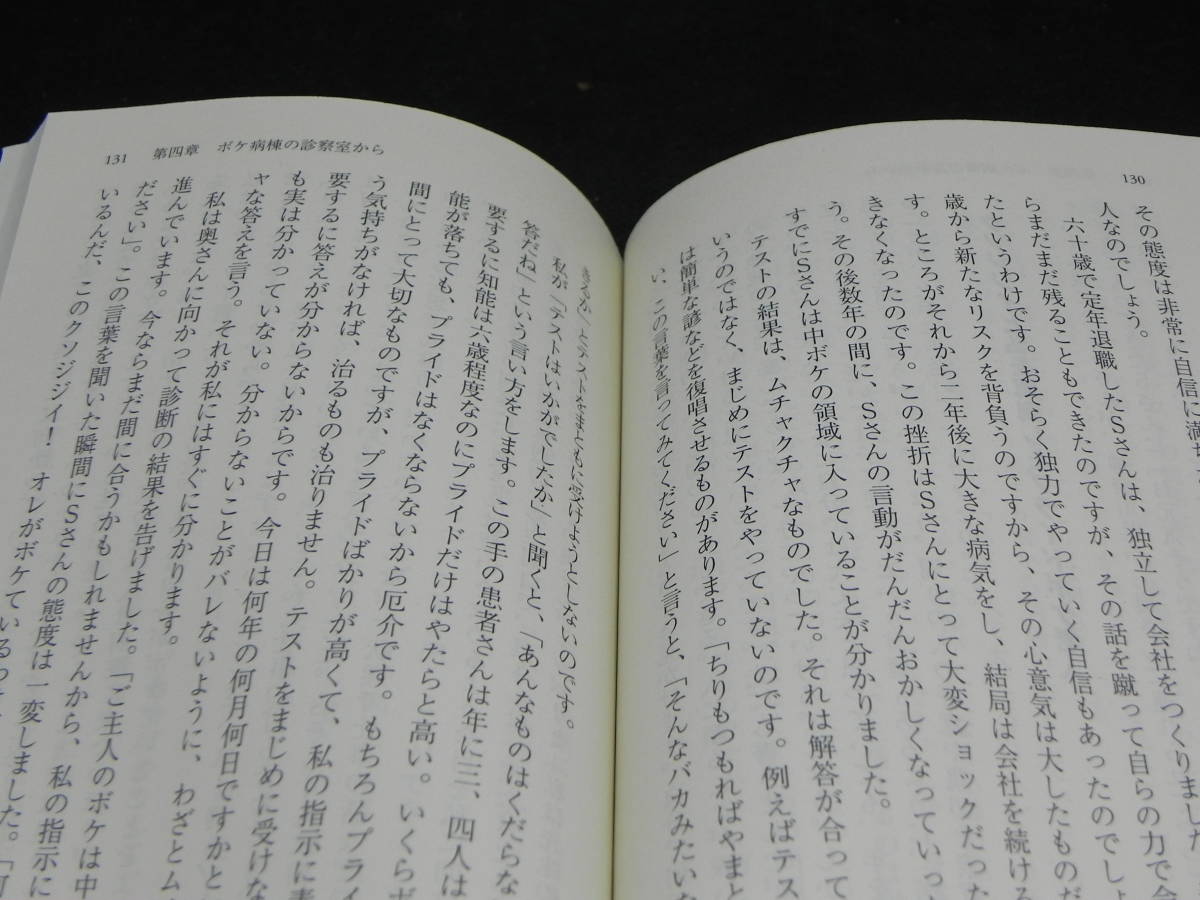 130
その態度は非常に自信に満ち
人なのでしょう。
六十歳で定年退職したSさんは、独立して会社をつくりました
らまだまだ残ることもできたのですが、その話を蹴って自らの力で会
たというわけです。おそらく独力でやっていく自信もあったのでしょ
歳から新たなリスクを背負うのですから、その心意気は大したものだ
す。ところがそれから二年後に大きな病気をし、結局は会社を続ける
きなくなったのです。この挫折はSさんにとって大変ショックだった
う。その後数年の間に、Sさんの言動がだんだんおかしくなっていっ
すでにSさんは中ボケの領域に入っていることが分かりました。
テストの結果は、ムチャクチャなものでした。それは解答が合って
いうのではなく、まじめにテストをやっていないのです。例えばテス
は簡単な諺などを復唱させるものがあります。「ちりもつもればやまと
い、この言葉を言ってみてください」と言うと、「そんなバカみたいな
131 第四章 ボケ病棟の診察室から
きるか」とテストをまともに受けようとしないのです。
私が「テストはいかがでしたか」と聞くと、「あんなものはくだらな
答だね」という言い方をします。この手の患者さんは年に三、四人は
要するに知能は六歳程度なのにプライドだけはやたらと高い。いくらボ
能が落ちても、プライドはなくならないから厄介です。もちろんプライ
間にとって大切なものですが、プライドばかりが高くて、私の指示に素
う気持ちがなければ、治るものも治りません。テストをまじめに受けな
要するに答えが分からないからです。今日は何年の何月何日ですかと
も実は分かっていない。分からないことがバレないように、わざとム
ャな答えを言う。それが私にはすぐに分かります。
私は奥さんに向かって診断の結果を告げました。「ご主人のボケは中
進んでいます。今ならまだ間に合うかもしれませんから、私の指示に
ださい」。この言葉を聞いた瞬間にSさんの態度は一変しました。「何
いるんだ、このクソジジイ！ オレがボケているって